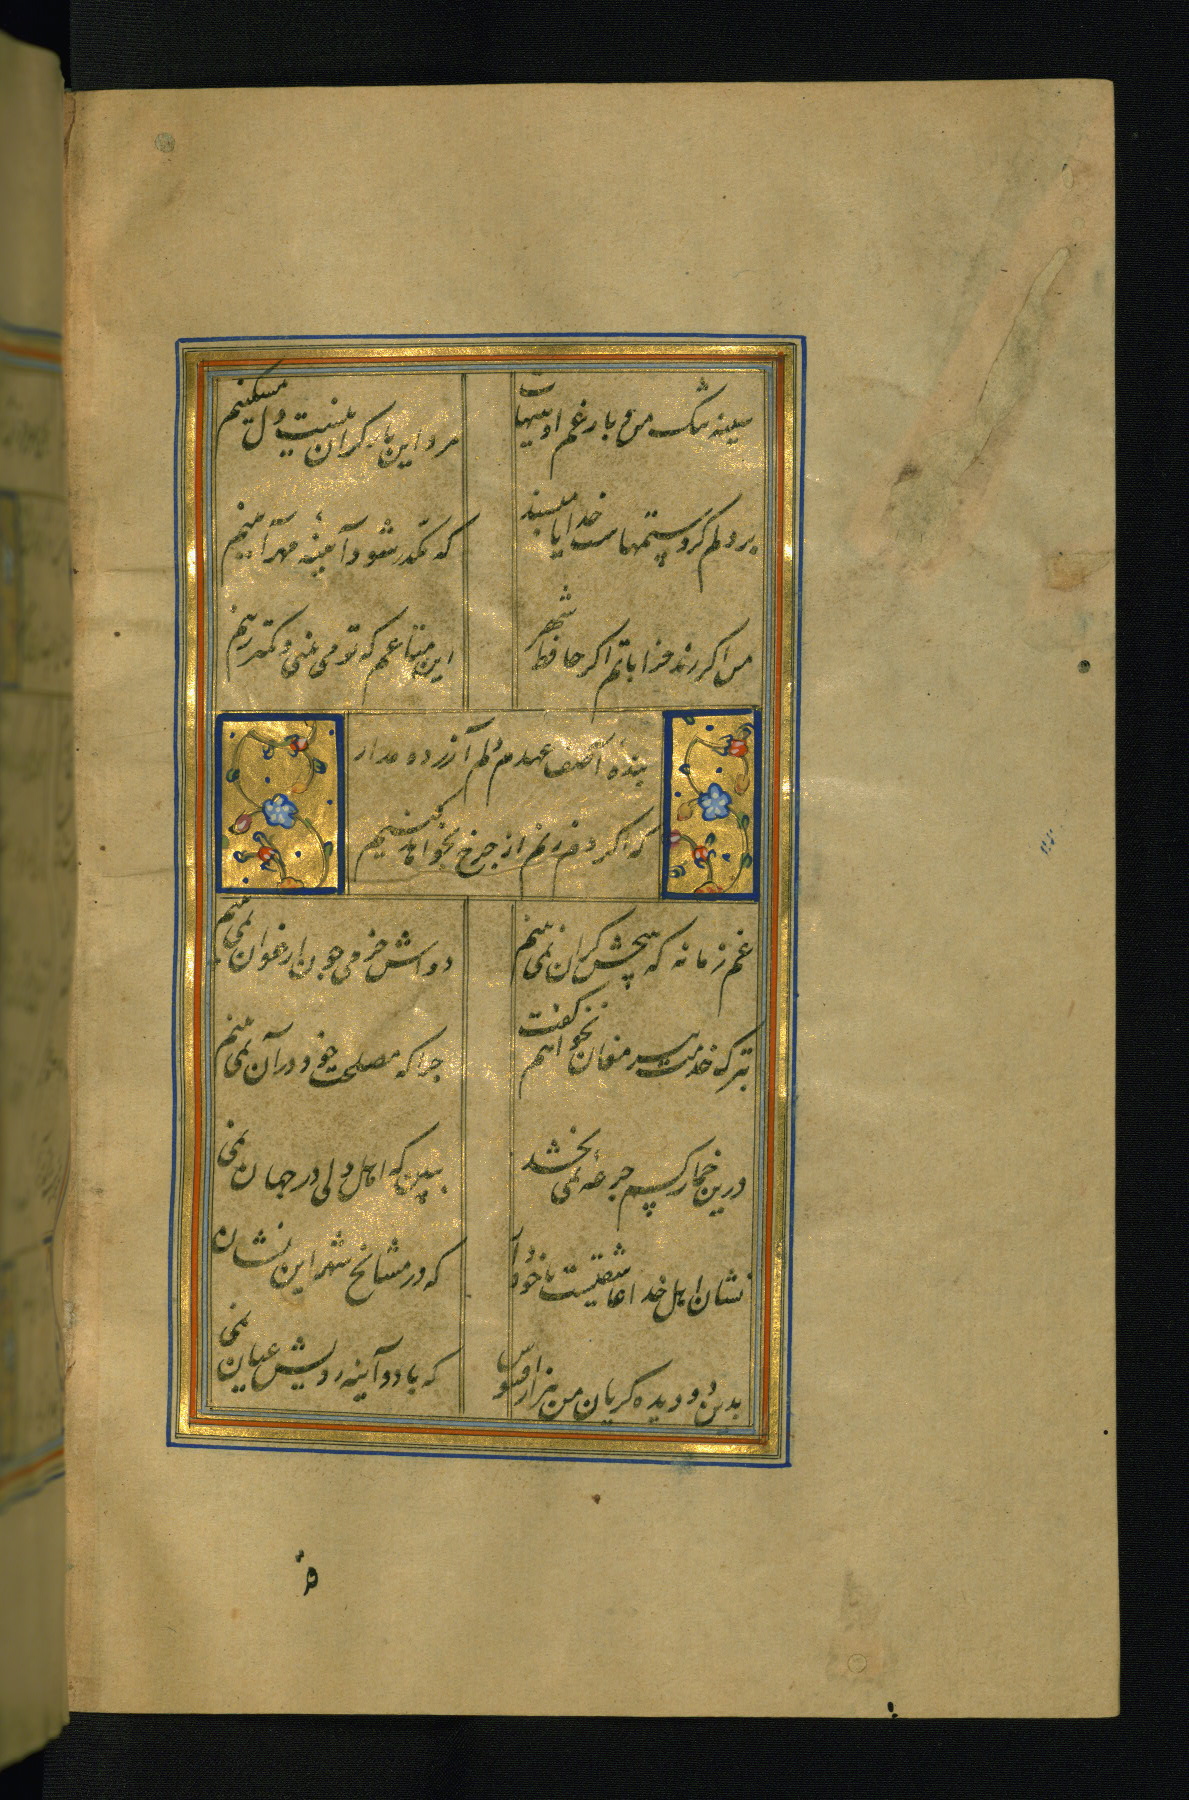 سینه تنک من و بار غم او هیهات
مرد این بار کران نیست دل مسکینم
بر دلم کرد ستمهاست خدایا مپسند
که مکدر شود آیینه مهر آیینم
من اکر رند خراباتم اکر حافظ شهر
این متاعم که تو می بینی و کمتر زینم
بنده آصف عهدم دلم آزرده مدار
که اکر دم زنم از چرخ بخواهد کینم
غم زمانه که هیچش کران نمی بینم
دواش جز می چون ارغوان نمی بینم
بترک خدمت پیر مغان نخواهم کفت
چرا که مصلحت خود در آن نمی بینم
درین خمار کسم جرعه نمی بخشد
ببین که اهل دلی در جهان نمی
نشان اهل خدا عاشقیست با خود آ
که در مشایخ شهر این نشان
بدین دو دیده کریان من هزار افسوس
که با دو آینه رویش عیان نمی